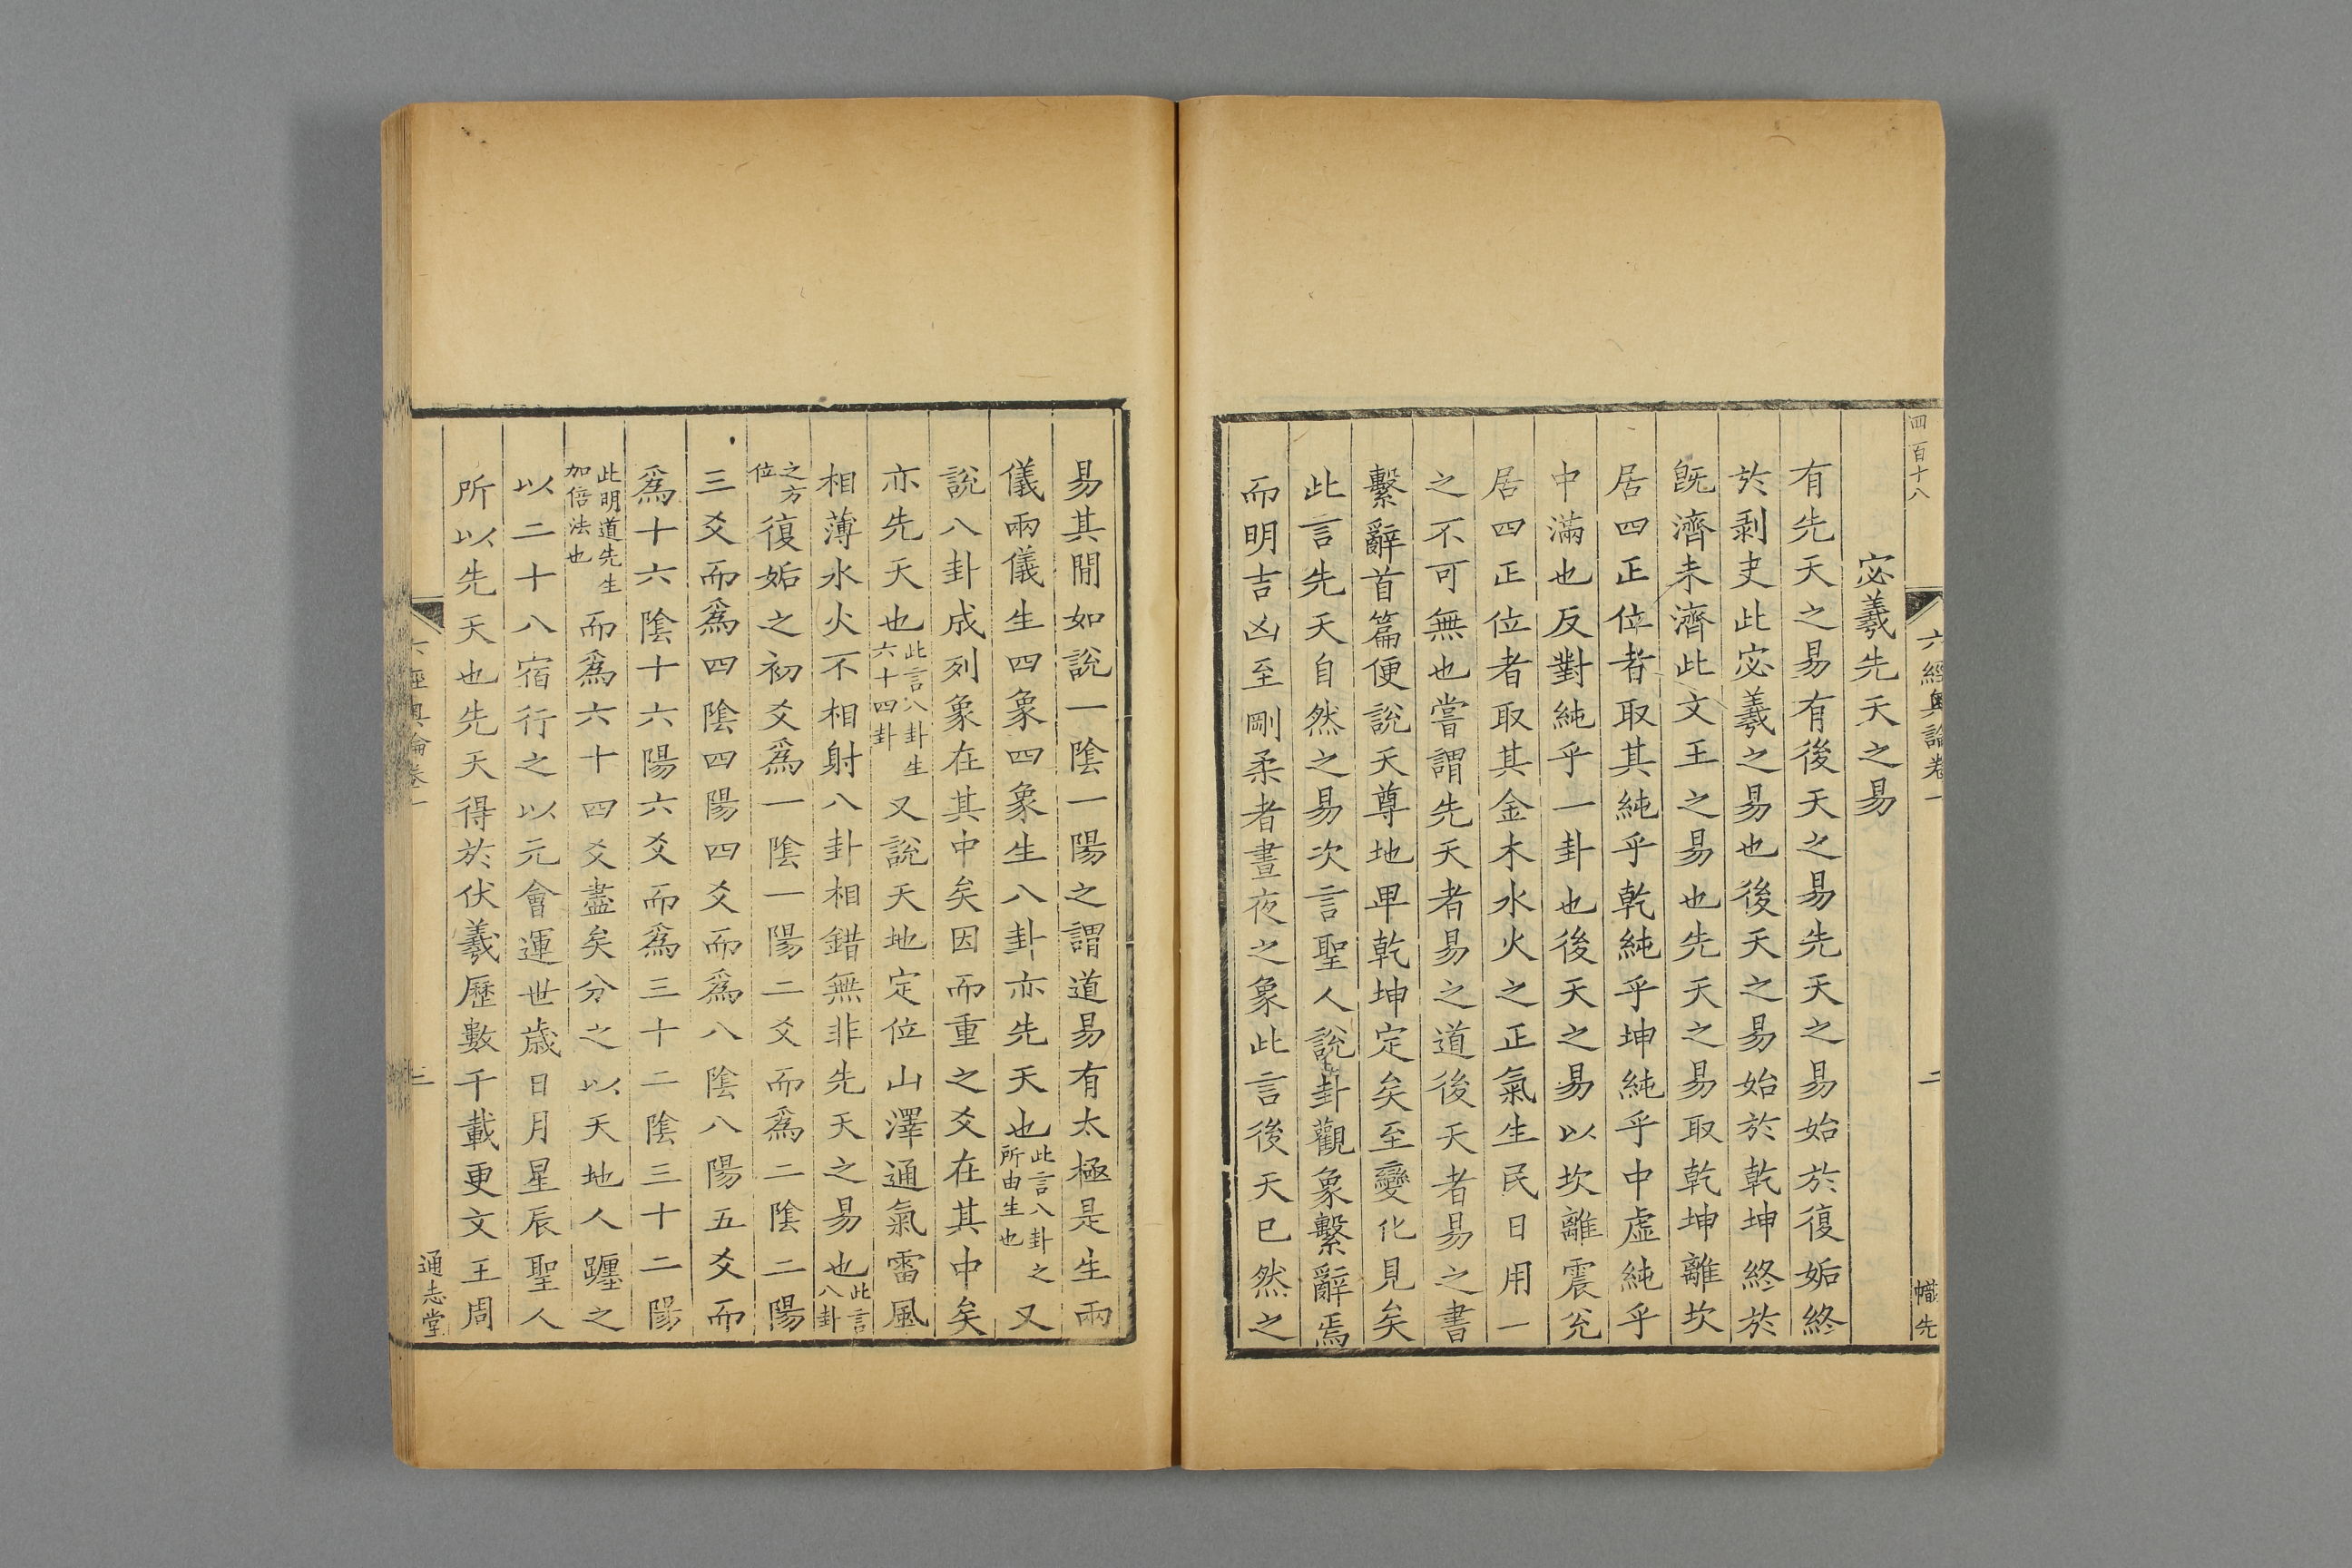 四百十八
六經奧論卷一
二
幟先
宓羲先天之易
有先天之易有後天之易先天之易始於復姤終
於剥夬此宓羲之易也後天之易始於乾坤終於
旣濟未濟此文王之易也先天之易取乾坤離坎
居四正位者取其純乎乾純乎坤純乎中虛純乎
中滿也反對純乎一卦也後天之易以坎離震兊
居四正位者取其金木水火之正氣生民日用一
之不可無也嘗謂先天者易之道後天者易之書
繫辭首篇便說天尊地卑乾坤定矣至變化見矣
此言先天自然之易次言聖人說卦觀象繫辭焉
而明吉凶至剛柔者晝夜之象此言後天已然之
易其閒如說一陰一陽之謂道易有太極是生兩
儀兩儀生四象四象生八卦亦先天也此言八卦之所由生也又
說八卦成列象在其中矣因而重之爻在其中矣
亦先天也此言八卦生六十四卦又說天地定位山澤通氣雷風
相薄水火不相射八卦相錯無非先天之易也此言八卦
之方位復姤之初爻爲一陰一陽二爻而爲二陰二陽
三爻而爲四陰四陽四爻而爲八陰八陽五爻而
爲十六陰十六陽六爻而爲三十二陰三十二陽
此明道先生加倍法也而爲六十四爻盡矣分之以天地人躔之
以二十八宿行之以元會運世歲日月星辰聖人
所以先天也先天得於伏羲歷數千載更文王周
六經奧論卷一
三
通志堂